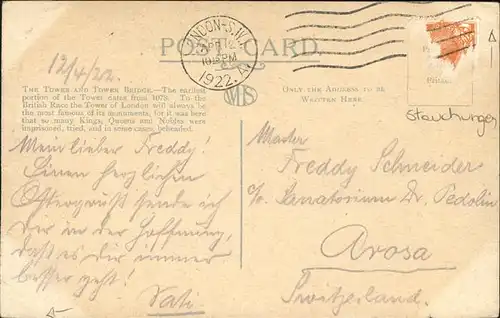 POST CARD.
LONDON. S.W.1
APR 12
10.15 PM
1922
12/4/22.
THE TOWER AND TOWER BRIDGE.—The earliest
portion of the Tower dates from 1078. To the
British Race the Tower of London will always be
the most famous of its monuments, for it was here
that so many Kings, Queens and Nobles were
imprisoned, tried, and in some cases, beheaded.
ONLY THE ADDRESS TO BE
WRITTEN HERE
Mein lieber Freddy!
Einen herzlichen
Ostergruß sende ich
Dir in der Hoffnung,
daß es Dir immer
besser geht!
Vati
Master
Freddy Schneider
c/o Sanatorium Dr. Pedolin
Arosa
Switzerland.